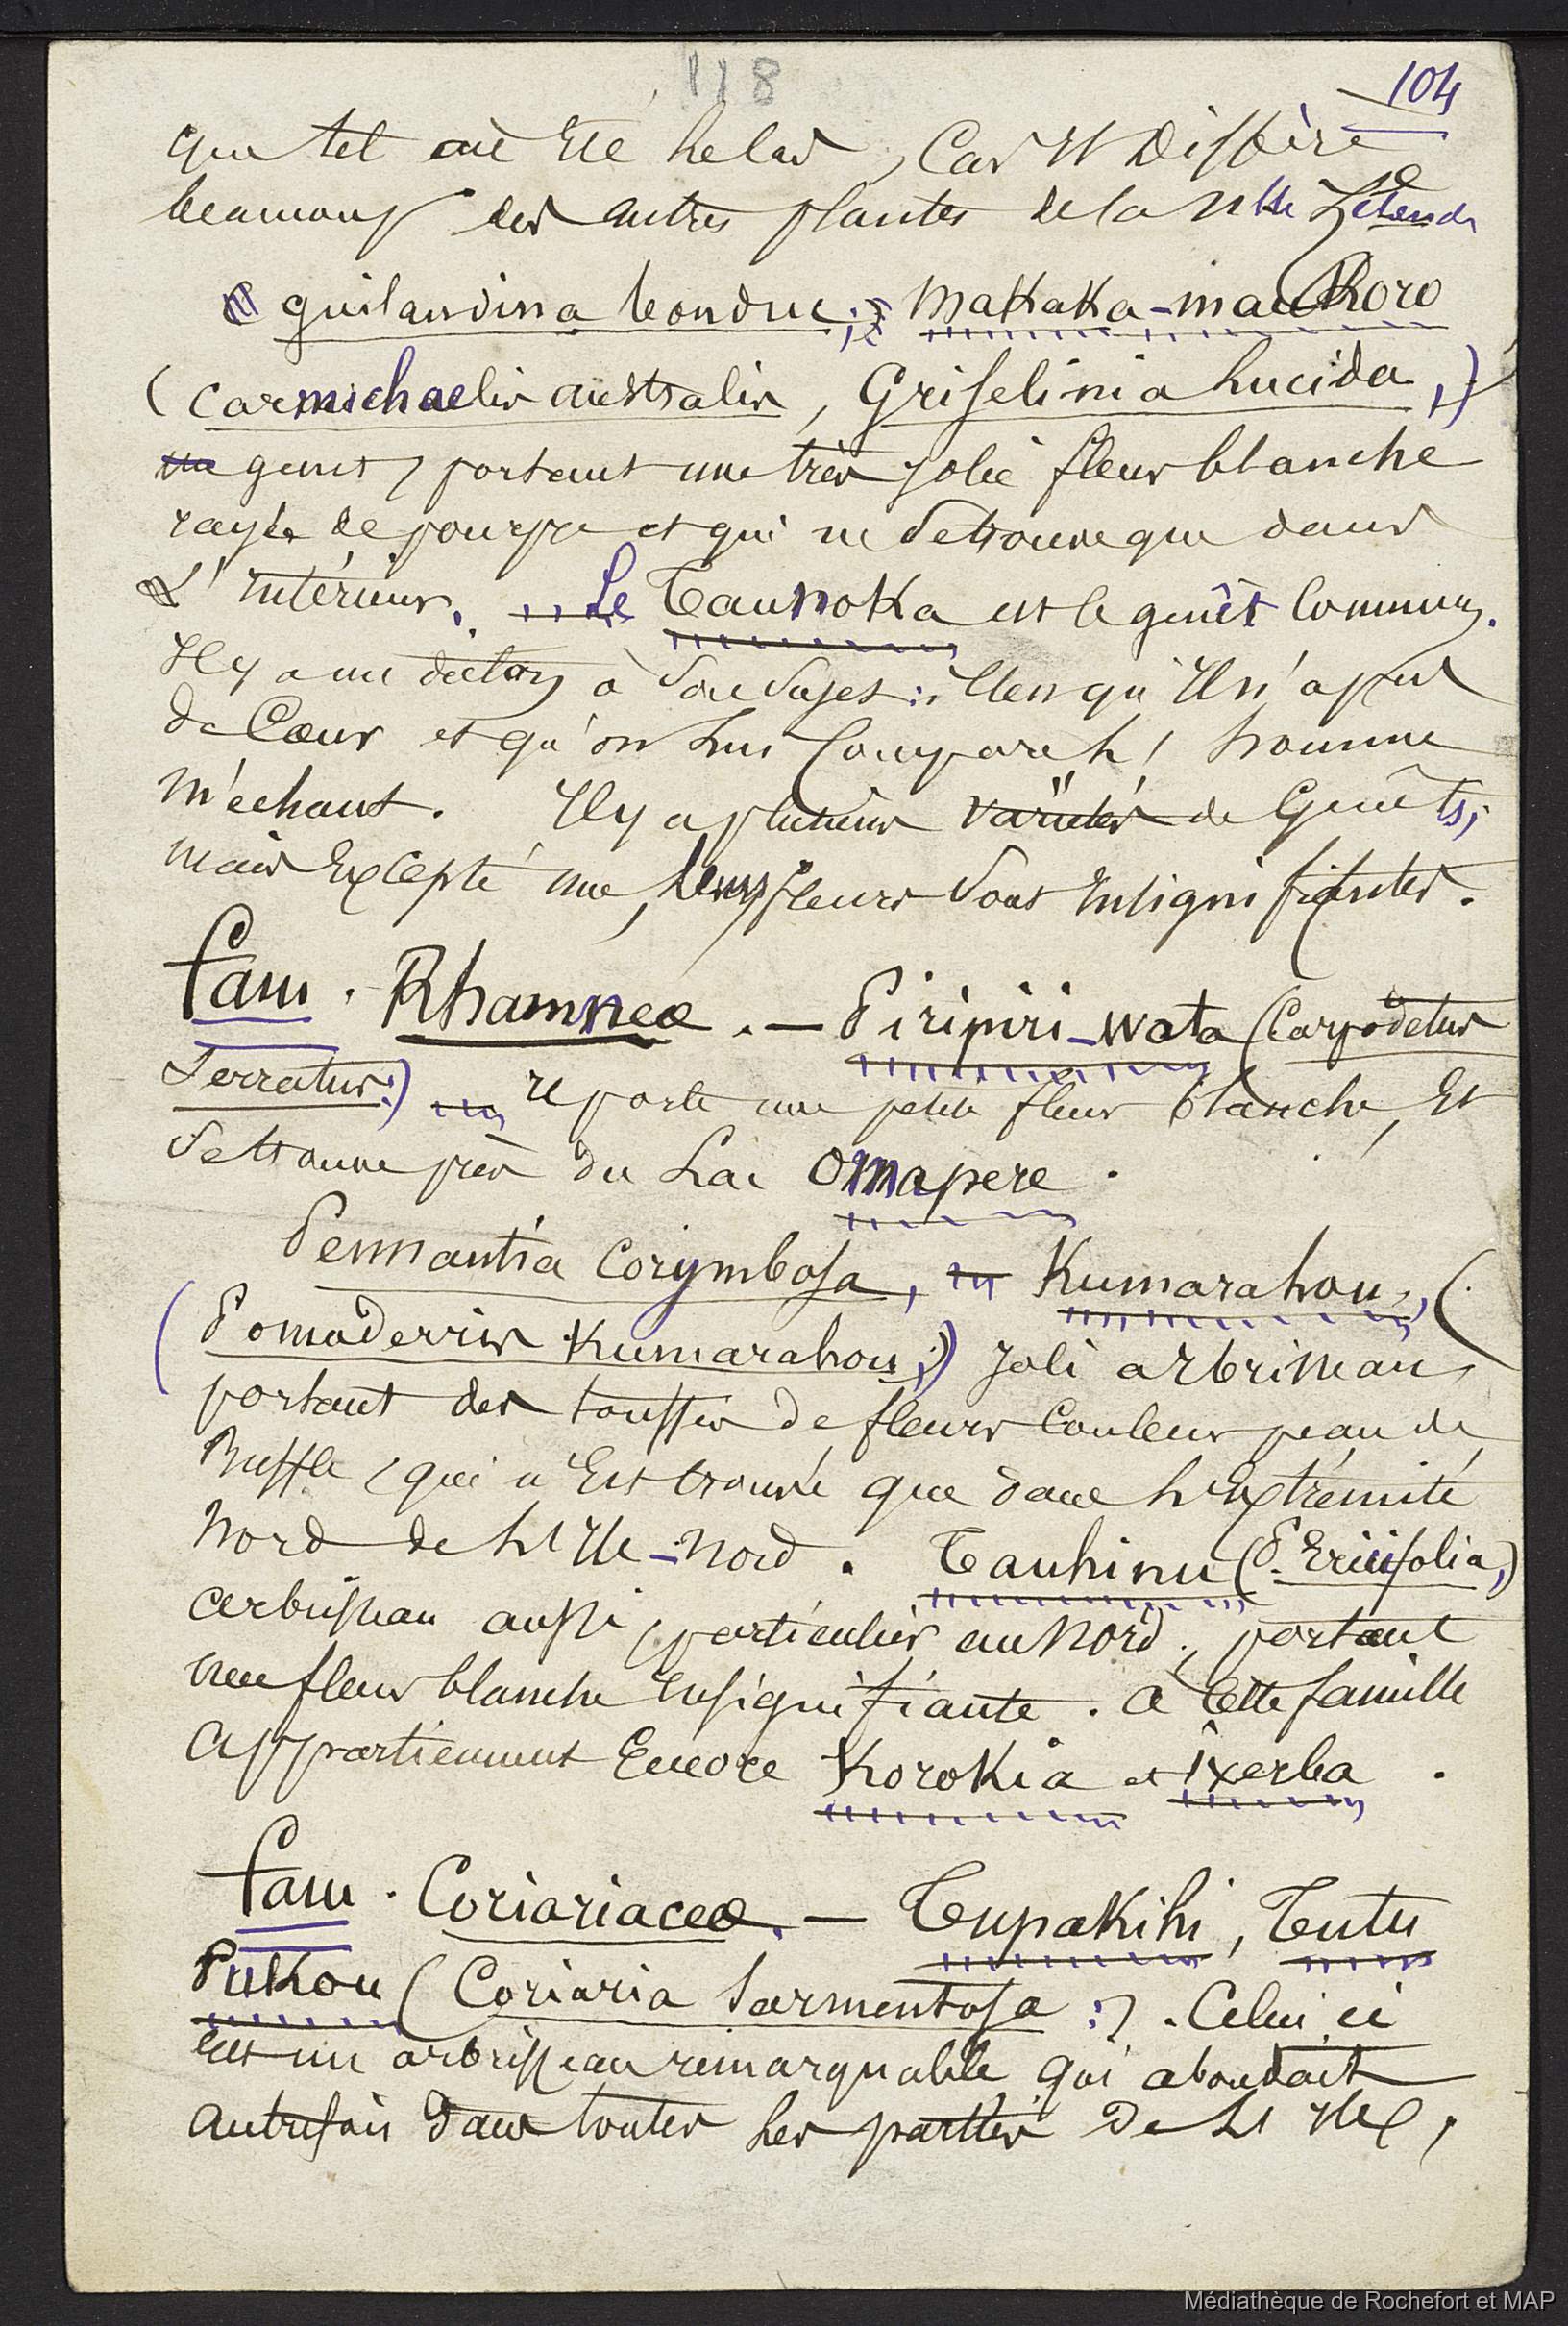 118
104
que tel ait été helas, Car Il Diffère
beaucoup des autres plantes de la Nlle Zélande
guilandina bonduc; Makaka-mau Roro
(Carmichaelis australis, Griselinia Lucida,)
genet, portant une très jolie fleur blanche
rayée de pourpre et qui ne se trouve que dans
L'intérieur. Le Taunoka est le genêt Commun.
Il y a un dicton à son sujet: C'est qu'Il n'a pas
de Cœur et qu'on Lui Compare L'homme
Méchant. Il y a plusieurs variétés de Genêts;
mais Excepté une, leurs fleurs sont Insignifiantes.
fam. Rhamneæ. — Piripiri-wata (Carpodetus
Serratus:) Il porte une petite fleur blanche, Et
se trouve près du Lac Omapere.
Pennantia Corymbosa, Kumarahou, (
(Pomaderris Kumarahou;) Joli arbrisseau
portant des touffes de fleurs Couleur peau de
Buffle, qui n'Est trouvé que dans L'Extrémité
Nord de L'Ile-Nord. Tauhinu (P. Ericifolia,)
arbrisseau aussi, particulier au Nord, portant
une fleur blanche Insignifiante. A Cette famille
Appartiennent Encore Korokia et Ixerba.
fam. Coriariaceæ. — Tupakihi, Tutu
Pukou (Coriaria Sarmentosa:). Celui ci
Est un arbrisseau remarquable qui abondait
Autrefois dans toutes Les parties De L'Ile,
Médiathèque de Rochefort et MAP